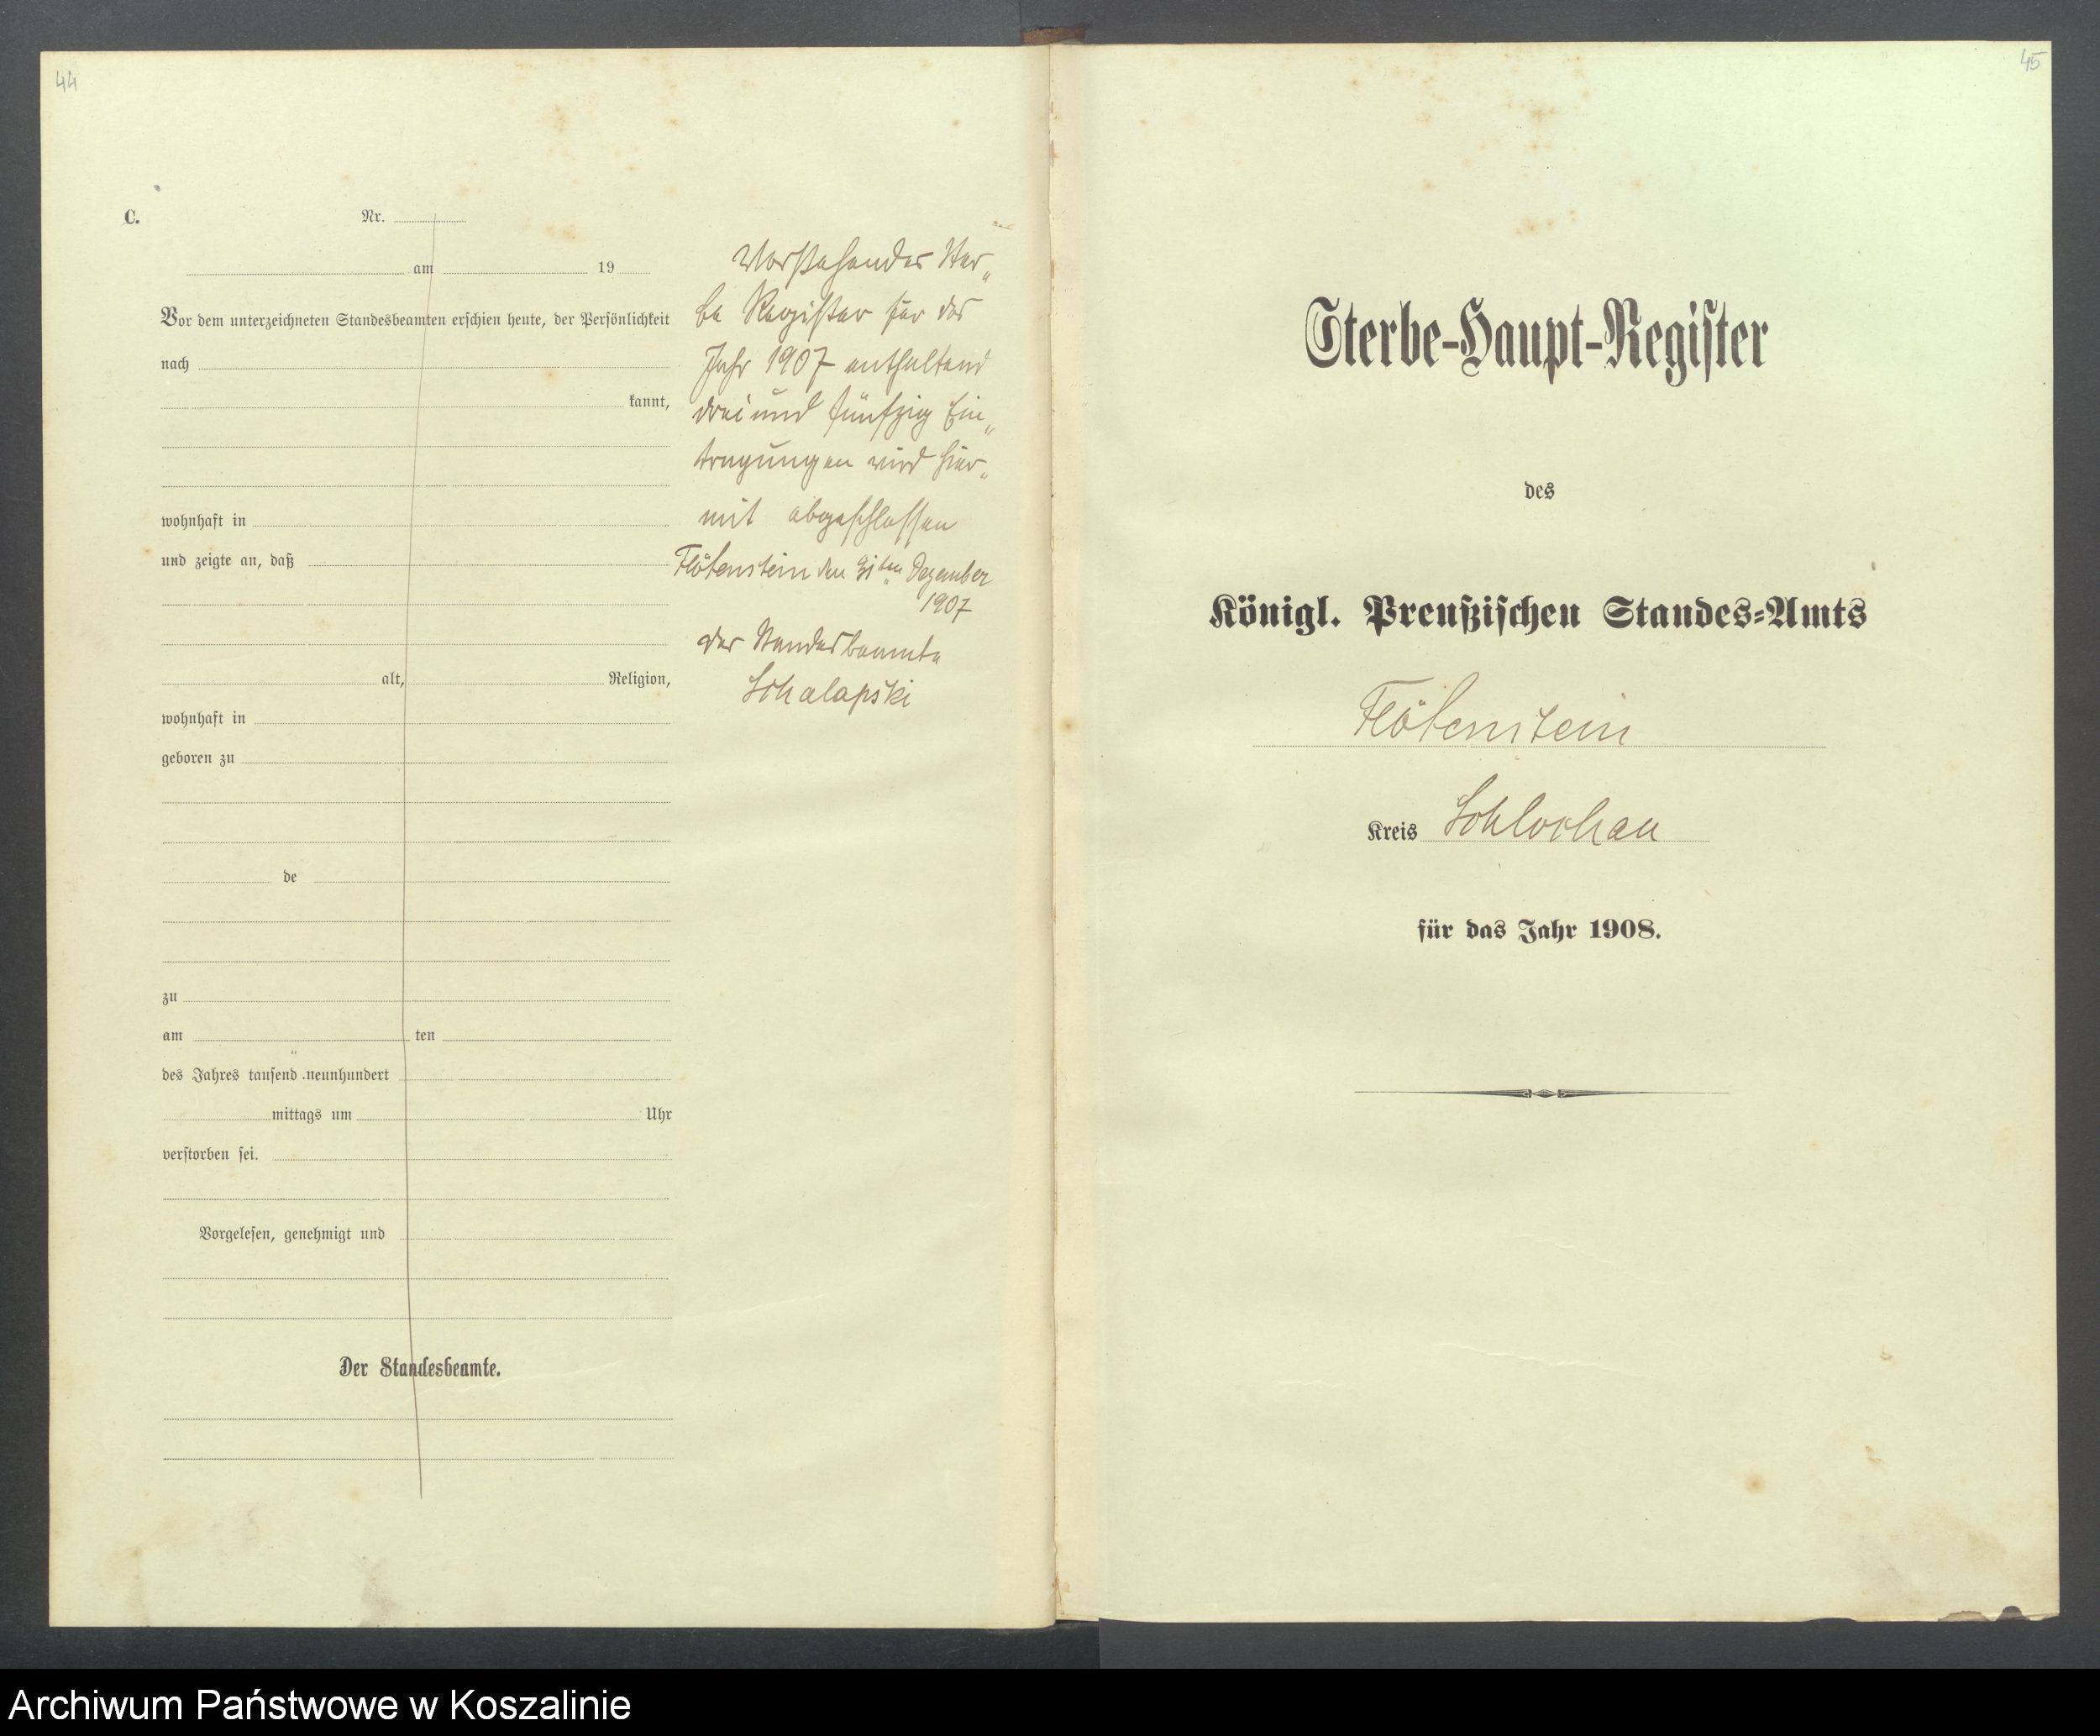 44
C.
Nr.
am 19
Vor dem unterzeichneten Standesbeamten erschien heute, der Persönlichkeit
nach
kannt,
wohnhaft in
und zeigte an, daß
alt, Religion,
wohnhaft in
geboren zu
de
zu
am ten
des Jahres tausend neunhundert
mittags um Uhr
verstorben sei.
Vorgelesen, genehmigt und
Der Standesbeamte.
Vorstehendes Ster„
be Register für das
Jahr 1907 enthaltend
drei und fünfzig Ein„
tragungen wird hier„
mit abgeschlossen
Flötenstein den 31ten Dezember
1907
der Standesbeamte
Schalapski
45
Sterbe-Haupt-Register
des
Königl. Preußischen Standes-Amts
Flötenstein
Kreis Schlochau
für das Jahr 1908.
Archiwum Państwowe w Koszalinie